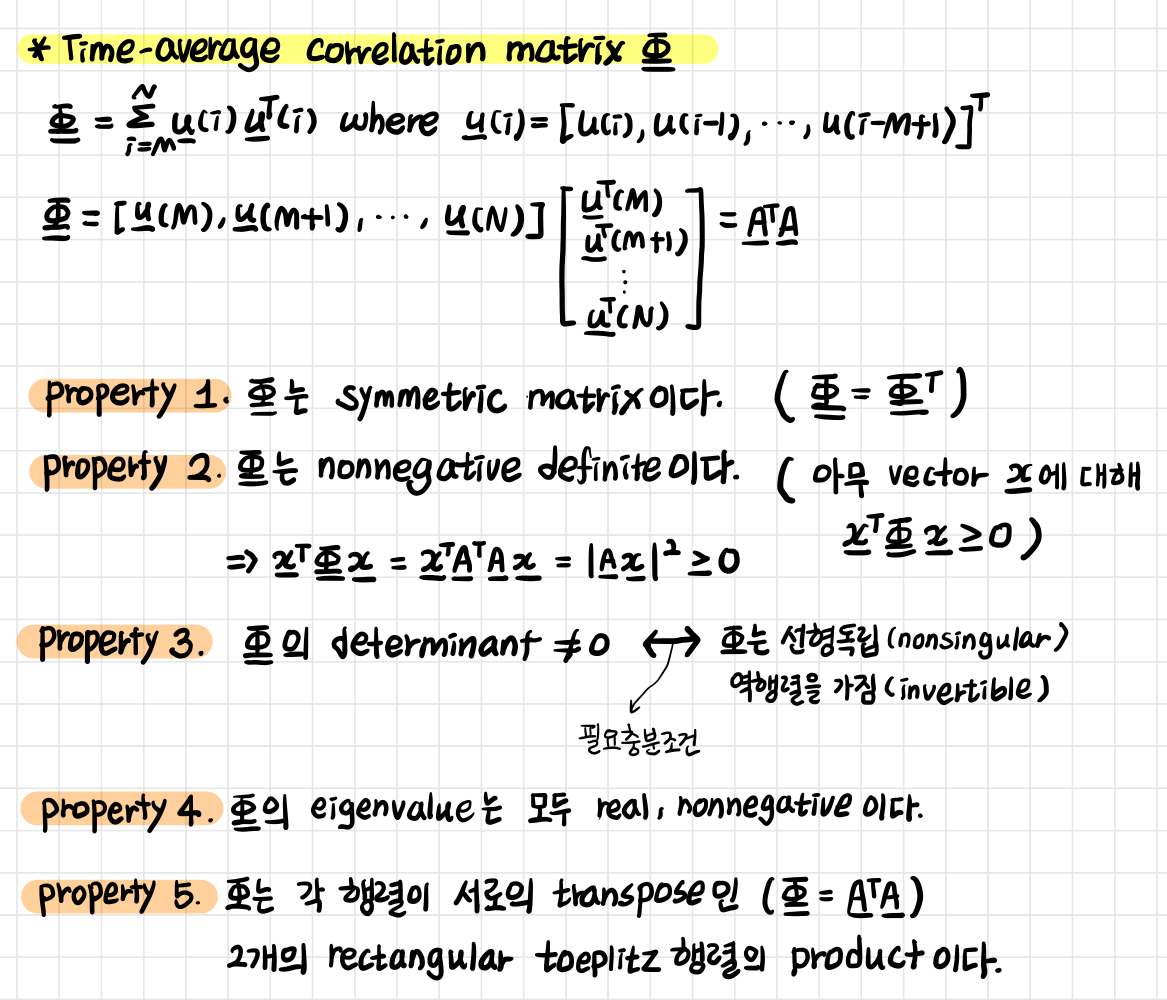 * Time-average correlation matrix Φ
Φ = Σ_{i=M}^{N} u(i) u^T(i) where u(i) = [u(i), u(i-1), ..., u(i-M+1)]^T
Φ = [u(M), u(M+1), ..., u(N)] [u^T(M) u^T(M+1) ⋮ u^T(N)] = A^T A
property 1. Φ는 symmetric matrix이다. ( Φ = Φ^T )
property 2. Φ는 nonnegative definite이다. ( 아무 vector x에 대해
x^T Φ x ≥ 0 )
=> x^T Φ x = x^T A^T A x = |A x|^2 ≥ 0
property 3. Φ의 determinant ≠ 0 ↔ Φ는 선형독립 (nonsingular)
역행렬을 가짐 (invertible)
필요충분조건
property 4. Φ의 eigenvalue는 모두 real, nonnegative이다.
property 5. Φ는 각 행렬이 서로의 transpose인 (Φ = A^T A)
2개의 rectangular toeplitz 행렬의 product이다.